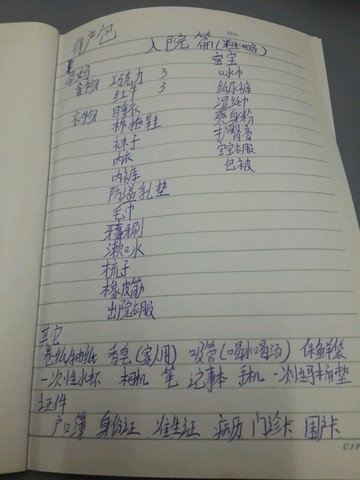 待产包
入院篇
妈妈 宝宝
食物 巧克力 3 口水巾
红牛 3 纸尿裤
衣物 睡衣 湿纸巾
棉拖鞋 爽身粉
袜子 护臀膏
内衣 宝宝衣服
内裤 包被
防溢乳垫
毛巾
牙膏牙刷
漱口水
梳子
橡皮筋
出院衣服
其它
卷纸抽纸 香皂(家人用) 吸管(喝水喝汤) 保鲜袋
一次性水杯 相机 笔 记事本 手机 一次性马桶垫
证件
户口簿 身份证 准生证 病历 门诊卡 医户卡